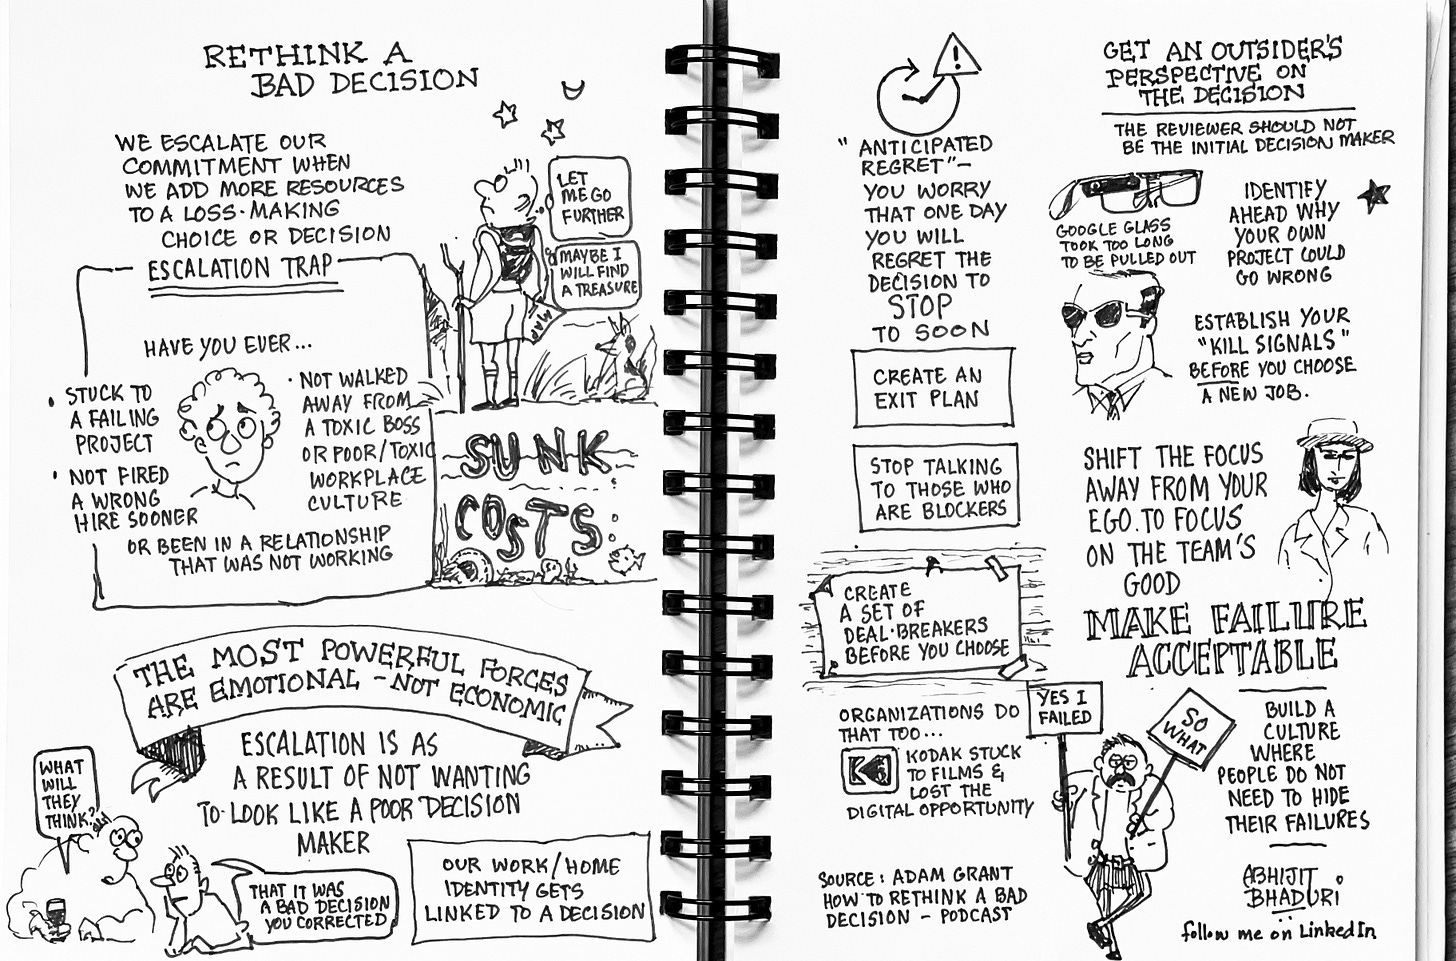 RETHINK A
BAD DECISION
WE ESCALATE OUR
COMMITMENT WHEN
WE ADD MORE RESOURCES
TO A LOSS-MAKING
CHOICE OR DECISION
LET
ME GO
FURTHER
MAYBE I
WILL FIND
A TREASURE
MAP
ESCALATION TRAP
HAVE YOU EVER...
• STUCK TO
A FAILING
PROJECT
• NOT FIRED
A WRONG
HIRE SOONER
• NOT WALKED
AWAY FROM
A TOXIC BOSS
OR POOR/TOXIC
WORKPLACE
CULTURE
OR BEEN IN A RELATIONSHIP
THAT WAS NOT WORKING
SUNK
COSTS
THE MOST POWERFUL FORCES
ARE EMOTIONAL - NOT ECONOMIC
ESCALATION IS AS
A RESULT OF NOT WANTING
TO LOOK LIKE A POOR DECISION
MAKER
WHAT
WILL
THEY
THINK?
THAT IT WAS
A BAD DECISION
YOU CORRECTED
OUR WORK/HOME
IDENTITY GETS
LINKED TO A DECISION
!
"ANTICIPATED
REGRET"-
YOU WORRY
THAT ONE DAY
YOU WILL
REGRET THE
DECISION TO
STOP
TO SOON
CREATE AN
EXIT PLAN
STOP TALKING
TO THOSE WHO
ARE BLOCKERS
CREATE
A SET OF
DEAL-BREAKERS
BEFORE YOU CHOOSE
ORGANIZATIONS DO
THAT TOO...
K
KODAK STUCK
TO FILMS &
LOST THE
DIGITAL OPPORTUNITY
SOURCE: ADAM GRANT
HOW TO RETHINK A BAD
DECISION - PODCAST
GET AN OUTSIDER'S
PERSPECTIVE ON
THE DECISION
THE REVIEWER SHOULD NOT
BE THE INITIAL DECISION MAKER
GOOGLE GLASS
TOOK TOO LONG
TO BE PULLED OUT
IDENTIFY
AHEAD WHY
YOUR OWN
PROJECT COULD
GO WRONG
ESTABLISH YOUR
"KILL SIGNALS"
BEFORE YOU CHOOSE
A NEW JOB.
SHIFT THE FOCUS
AWAY FROM YOUR
EGO. TO FOCUS
ON THE TEAM'S
GOOD
MAKE FAILURE
ACCEPTABLE
YES I
FAILED
SO
WHAT
BUILD A
CULTURE
WHERE
PEOPLE DO NOT
NEED TO HIDE
THEIR FAILURES
ABHIJIT
BHADURI
follow me on LinkedIn